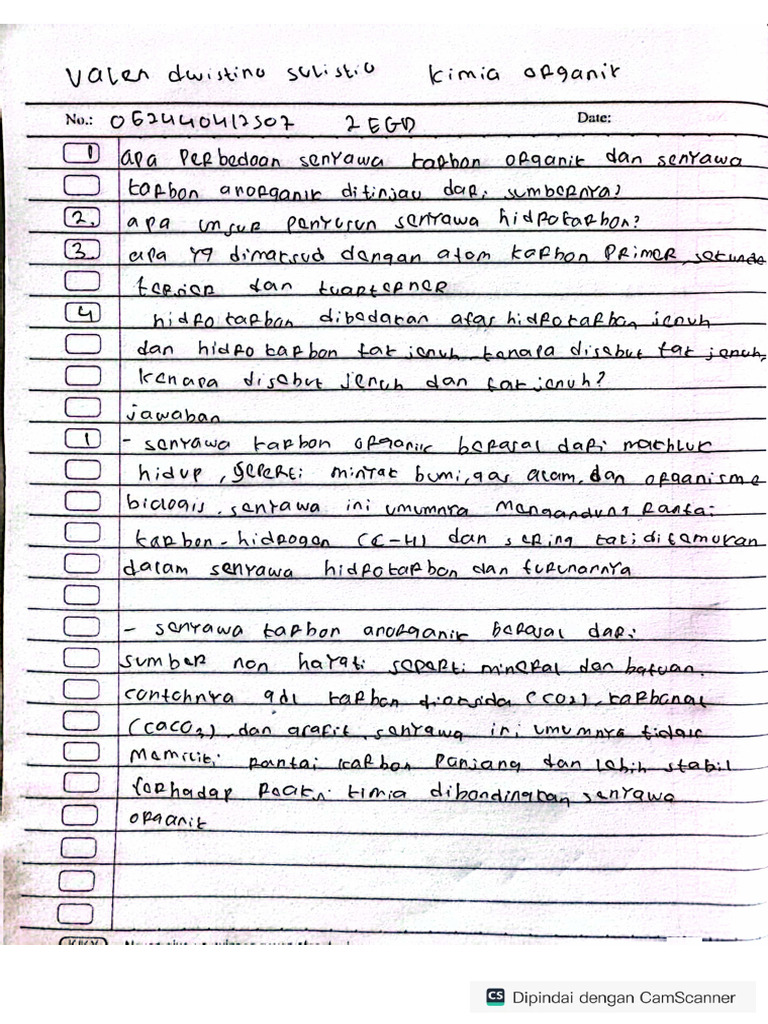 Valen dwistino sulistio kimia organik
No.: 062440412507 2 EGD Date:
1 apa Perbedaan senyawa karbon organik dan senyawa
karbon anorganik ditinjau dari sumbernya?
2. apa unsur penyusun senyawa hidrokarbon?
3. apa yg dimaksud dengan atom karbon Primer, sekunder
tersier dan kuarterner
4 hidrokarbon dibedakan atas hidrokarbon jenuh
dan hidrokarbon tak jenuh, kenapa disebut tak jenuh,
kenapa disebut jenuh dan tak jenuh?
jawaban
1 - senyawa karbon organik berasal dari makhluk
hidup, seperti minyak bumi, gas alam, dan organisme
biologis, senyawa ini umumnya mengandung rantai
karbon-hidrogen (C-H) dan sering kali ditemukan
dalam senyawa hidrokarbon dan turunannya
- senyawa karbon anorganik berasal dari
sumber non hayati seperti mineral dan batuan.
contohnya adl karbon dioksida (CO2), karbonat
(CaCO3), dan grafit, senyawa ini umumnya tidak
memiliki rantai karbon panjang dan lebih stabil
terhadap reaksi kimia dibandingkan senyawa
organik
CS Dipindai dengan CamScanner